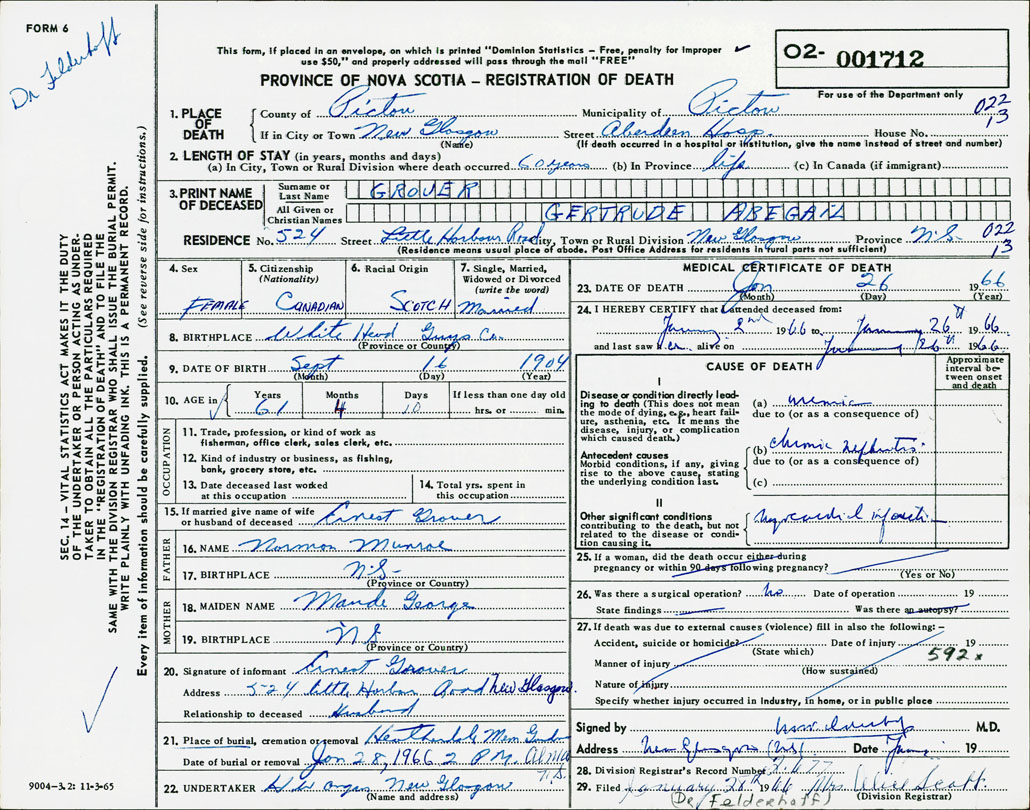 FORM 6
Dr Felderhoff
This form, if placed in an envelope, on which is printed "Dominion Statistics – Free, penalty for improper
use $50," and properly addressed will pass through the mail "FREE"
PROVINCE OF NOVA SCOTIA – REGISTRATION OF DEATH
O2- 001712
For use of the Department only
022
13
1. PLACE OF DEATH
County of Pictou Municipality of Pictou
If in City or Town New Glasgow Street Aberdeen Hosp. House No.
(Name) (If death occurred in a hospital or institution, give the name instead of street and number)
2. LENGTH OF STAY (in years, months and days)
(a) In City, Town or Rural Division where death occurred 60 years (b) In Province life (c) In Canada (if immigrant)
3. PRINT NAME OF DECEASED
Surname or Last Name GROVER
All Given or Christian Names GERTRUDE ABEGAIL
RESIDENCE No. 524 Street Little Harbour Road City, Town or Rural Division New Glasgow Province N.S. 022
13
(Residence means usual place of abode. Post Office Address for residents in rural parts not sufficient)
4. Sex
FEMALE
5. Citizenship
(Nationality)
CANADIAN
6. Racial Origin
SCOTCH
7. Single, Married, Widowed or Divorced
(write the word)
Married
8. BIRTHPLACE White Head Guys Co.
(Province or Country)
9. DATE OF BIRTH Sept 16 1904
(Month) (Day) (Year)
10. AGE in Years 61 Months 4 Days 10 If less than one day old
hrs. or min.
OCCUPATION
11. Trade, profession, or kind of work as
fisherman, office clerk, sales clerk, etc.
12. Kind of industry or business, as fishing,
bank, grocery store, etc.
13. Date deceased last worked
at this occupation
14. Total yrs. spent in
this occupation
15. If married give name of wife
or husband of deceased Ernest Grover
FATHER
16. NAME Norman Munroe
17. BIRTHPLACE N.S.
(Province or Country)
MOTHER
18. MAIDEN NAME Maude George
19. BIRTHPLACE N S
(Province or Country)
20. Signature of informant Ernest Grover
Address 524 Little Harbor Road New Glasgow
Relationship to deceased Husband
21. Place of burial, cremation or removal Heatherdale Mem Gardens
Date of burial or removal Jan 28, 1966 2 P.M. Alma
N.S.
22. UNDERTAKER New Glasgow
(Name and address)
MEDICAL CERTIFICATE OF DEATH
23. DATE OF DEATH Jan 26 1966
(Month) (Day) (Year)
24. I HEREBY CERTIFY that I attended deceased from:
January 2nd 1966 to January 26th 1966
and last saw her alive on January 26th 1966
CAUSE OF DEATH
Approximate interval between onset and death
I
Disease or condition directly leading to death (This does not mean
the mode of dying, e.g., heart failure, asthenia, etc. It means the
disease, injury, or complication
which caused death.)
(a) uremia
due to (or as a consequence of)
Antecedent causes
Morbid conditions, if any, giving
rise to the above cause, stating
the underlying condition last.
(b) Chronic Nephritis
due to (or as a consequence of)
(c)
II
Other significant conditions
contributing to the death, but not
related to the disease or condition causing it.
myocardial infarction
25. If a woman, did the death occur either during
pregnancy or within 90 days following pregnancy?
(Yes or No)
26. Was there a surgical operation? No Date of operation 19
State findings Was there an autopsy?
27. If death was due to external causes (violence) fill in also the following: –
Accident, suicide or homicide? Date of injury 19
(State which) 592x
Manner of injury
(How sustained)
Nature of injury
Specify whether injury occurred in industry, in home, or in public place
Signed by M.D.
Address New Glasgow (NS) Date 19
28. Division Registrar's Record Number
29. Filed January 28th 1966 Mrs Scott
(Dr Felderhoff) (Division Registrar)
SEC. 14 – VITAL STATISTICS ACT MAKES IT THE DUTY
OF THE UNDERTAKER OR PERSON ACTING AS UNDERTAKER TO OBTAIN ALL THE PARTICULARS REQUIRED
IN THE "REGISTRATION OF DEATH" AND TO FILE THE
SAME WITH THE DIVISION REGISTRAR WHO SHALL ISSUE THE BURIAL PERMIT.
WRITE PLAINLY WITH UNFADING INK. THIS IS A PERMANENT RECORD.
Every item of information should be carefully supplied. (See reverse side for instructions.)
9004-3.2: 11-3-65